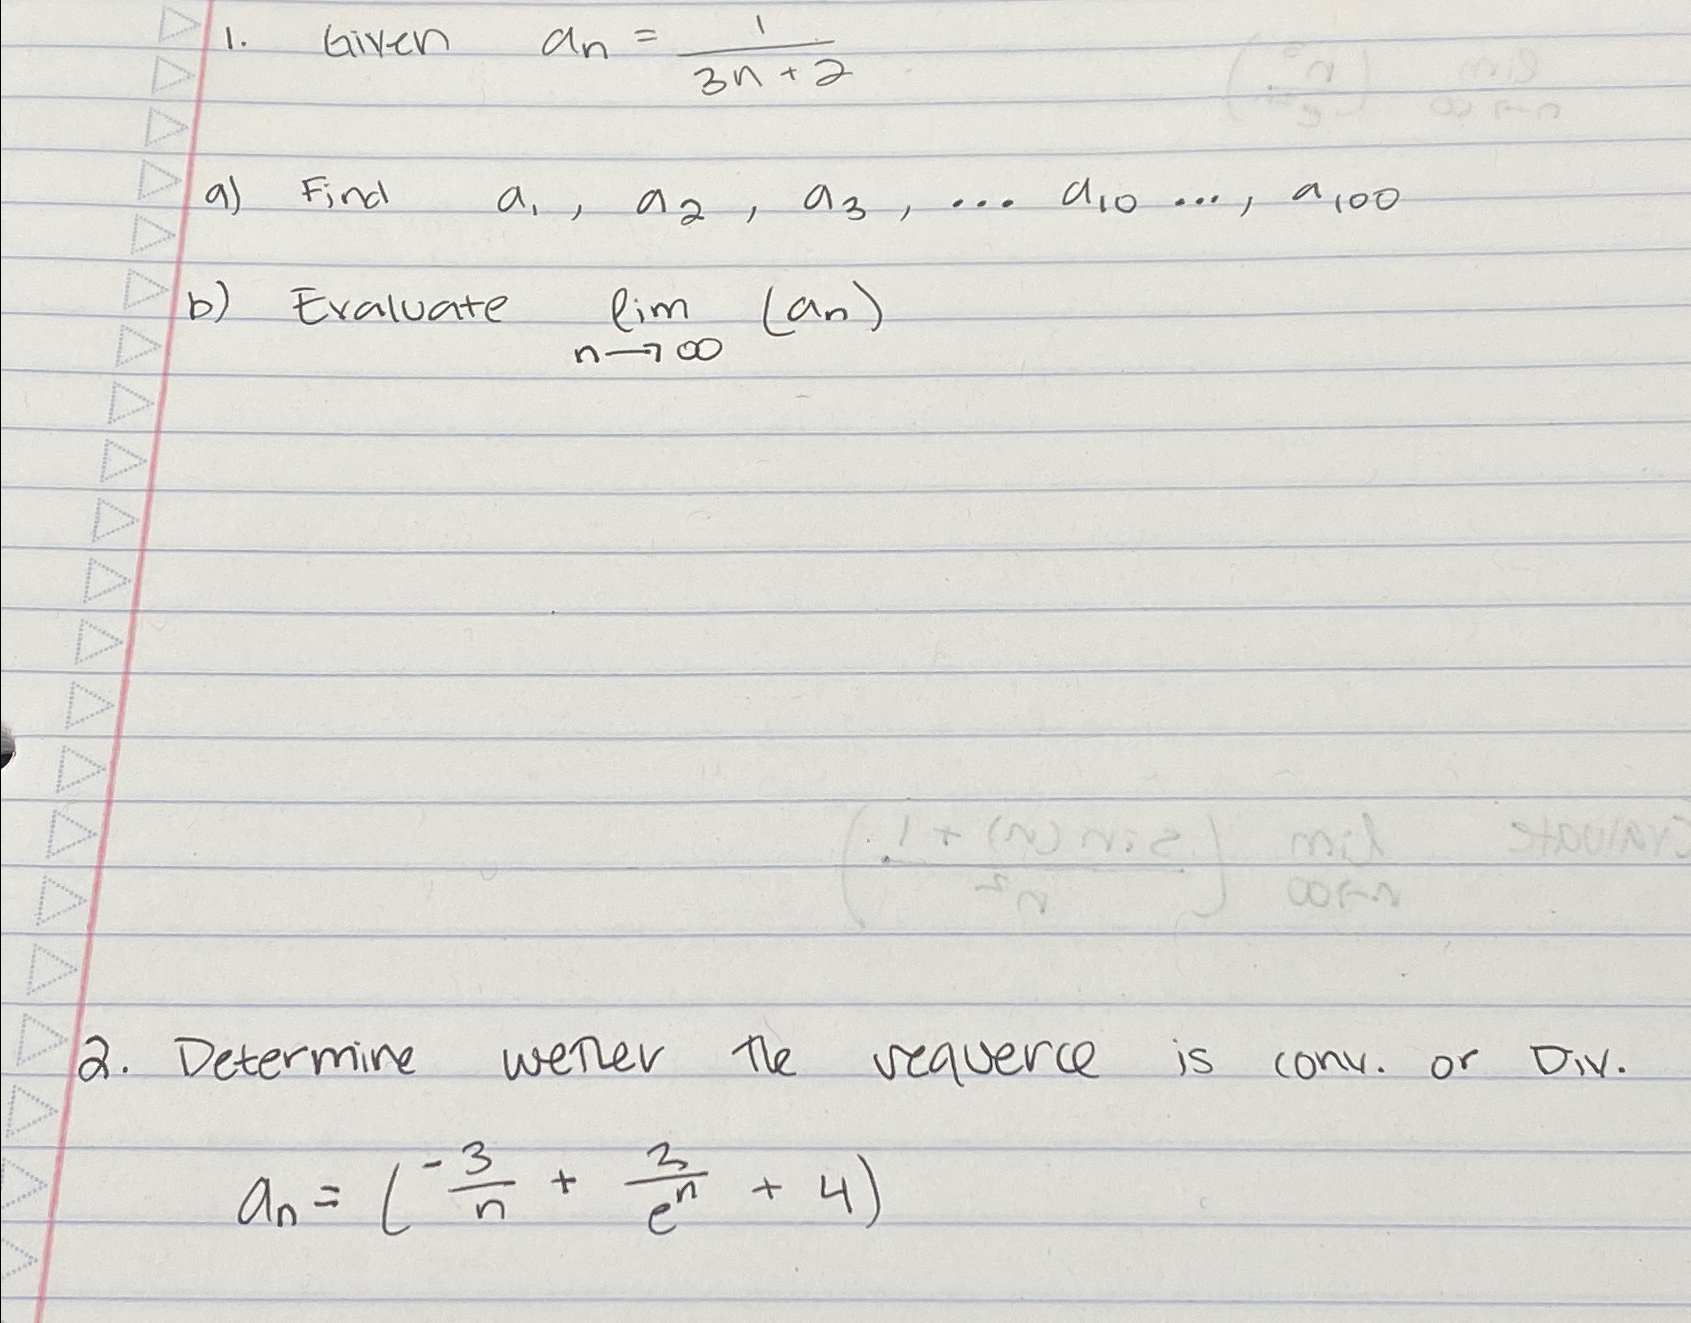 1. Given an = 1/(3n + 2)
a) Find a1, a2, a3, ... a10 ..., a100
b) Evaluate lim n→∞ (an)
2. Determine wether the sequence is conv. or Div.
an = (-3/n + 3/e^n + 4)